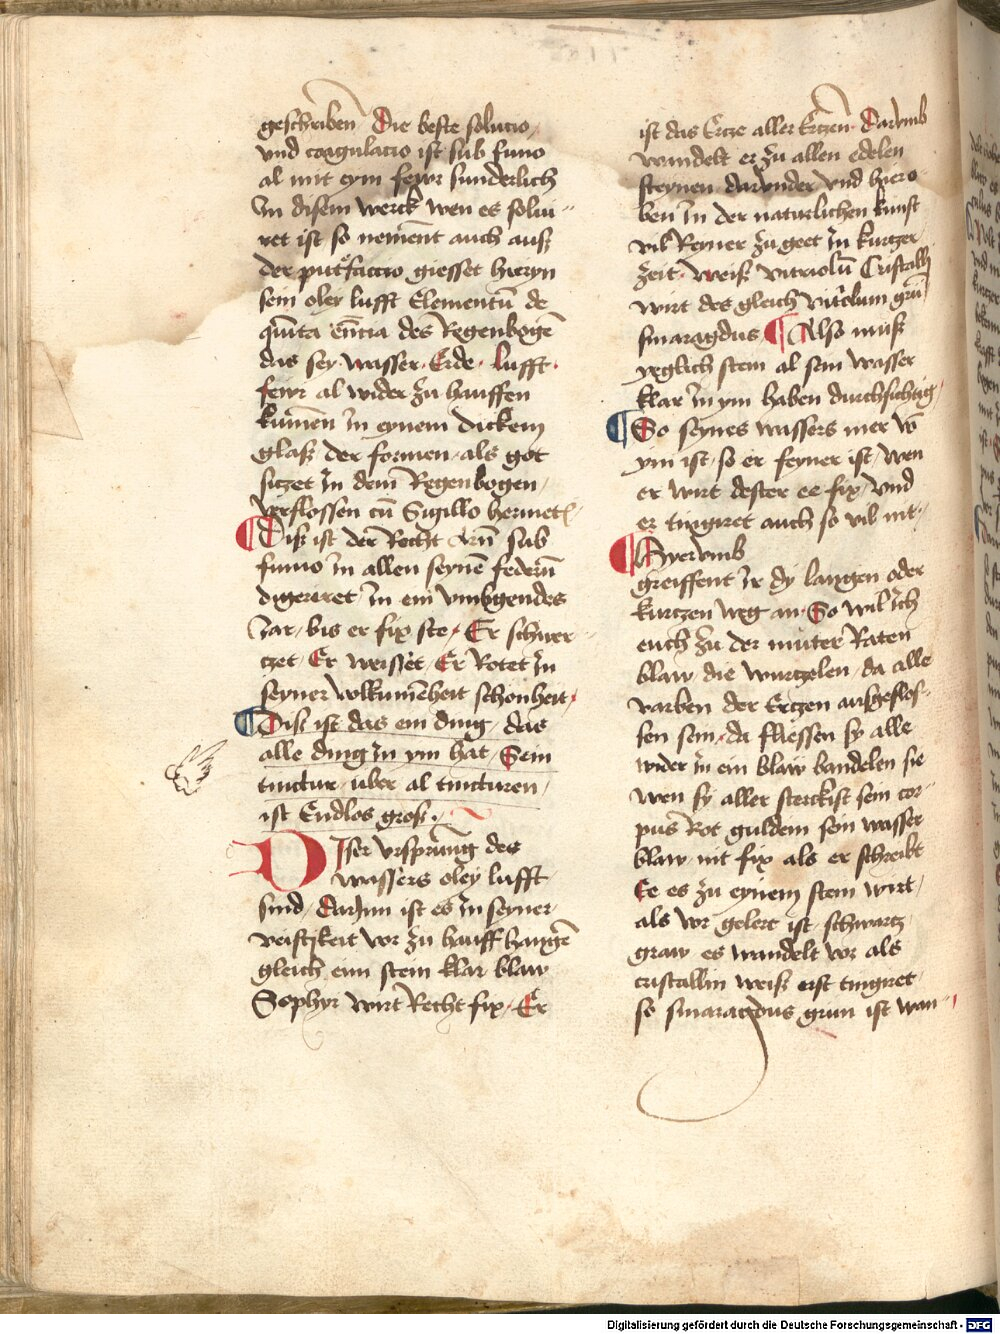 geschriben Die beste solucio
vnd coagulacio ist sub fimo
al mit eym fewr sunderlich
In disem werck wen es solui-
ret ist so nement auch auß
der putrefaccio giesset hieryn
sein oley lufft Elementū de
quīta eēncia des Regenbogē
das sey wasser Erde lufft
fewr al wider zu hauffen
kumen in eynem dickem
glaß der formen als got
siczet in dem Regenbogen
verslossen cū Sigillo hermet
¶ Diß ist der Recht Arn sub
fimo in allen seynē federn
digeriret in ein vmbgendes
Jar bis er fix ste Er schwer
czet Er weisset Er Rotet in
seyner volkumēheit schonheit
¶ Diß ist das ein ding das
alle ding in ym hat Sein
tinctur vber al tincturen
ist Endlos groß
Diser vrsprung des
wassers oley lufft
sind darJnn ist es in seyner
veistikeit vor zu hauff hangē
gleich eim stein klar blaw
Sophyr wirt Recht fix Er
ist das Ercze aller Erczen Darvmb
wandelt er zu allen edelen
steynen darvnder vnd hiero
ben in der naturlichen kunst
vil Reyner zu geet in kurtzer
zeit weiß vitriolū Cristall
wirt des gleich vitriolum grū
smaragdus ¶ Also muß
yeglich stein al sein wasser
klar in ym haben durchsichtig
¶ So seynes wassers mer vō
ym ist so er feyner ist wen
er wirt dester ee fix vnd
er tingiret auch so vil nit
¶ Hyervmb
greiffent ir dy langen oder
kurtzen weg an So wil ich
euch zu der muter Raten
blaw die wurtzelen da alle
varben der Erczen ausgeflos-
sen sein da fliessen sy alle
wider in ein blaw bandelen sie
wen sy aller sterckist sein cor
pus Rot guldein sein wasser
blaw nit fix als er schreibt
Ee es zu eynem stein wirt
als vor gelert ist schwartz
graw es wandelt vor als
cristallin weiß erst tingiret
so smaragdus grun ist wan
Digitalisierung gefördert durch die Deutsche Forschungsgemeinschaft - DFG